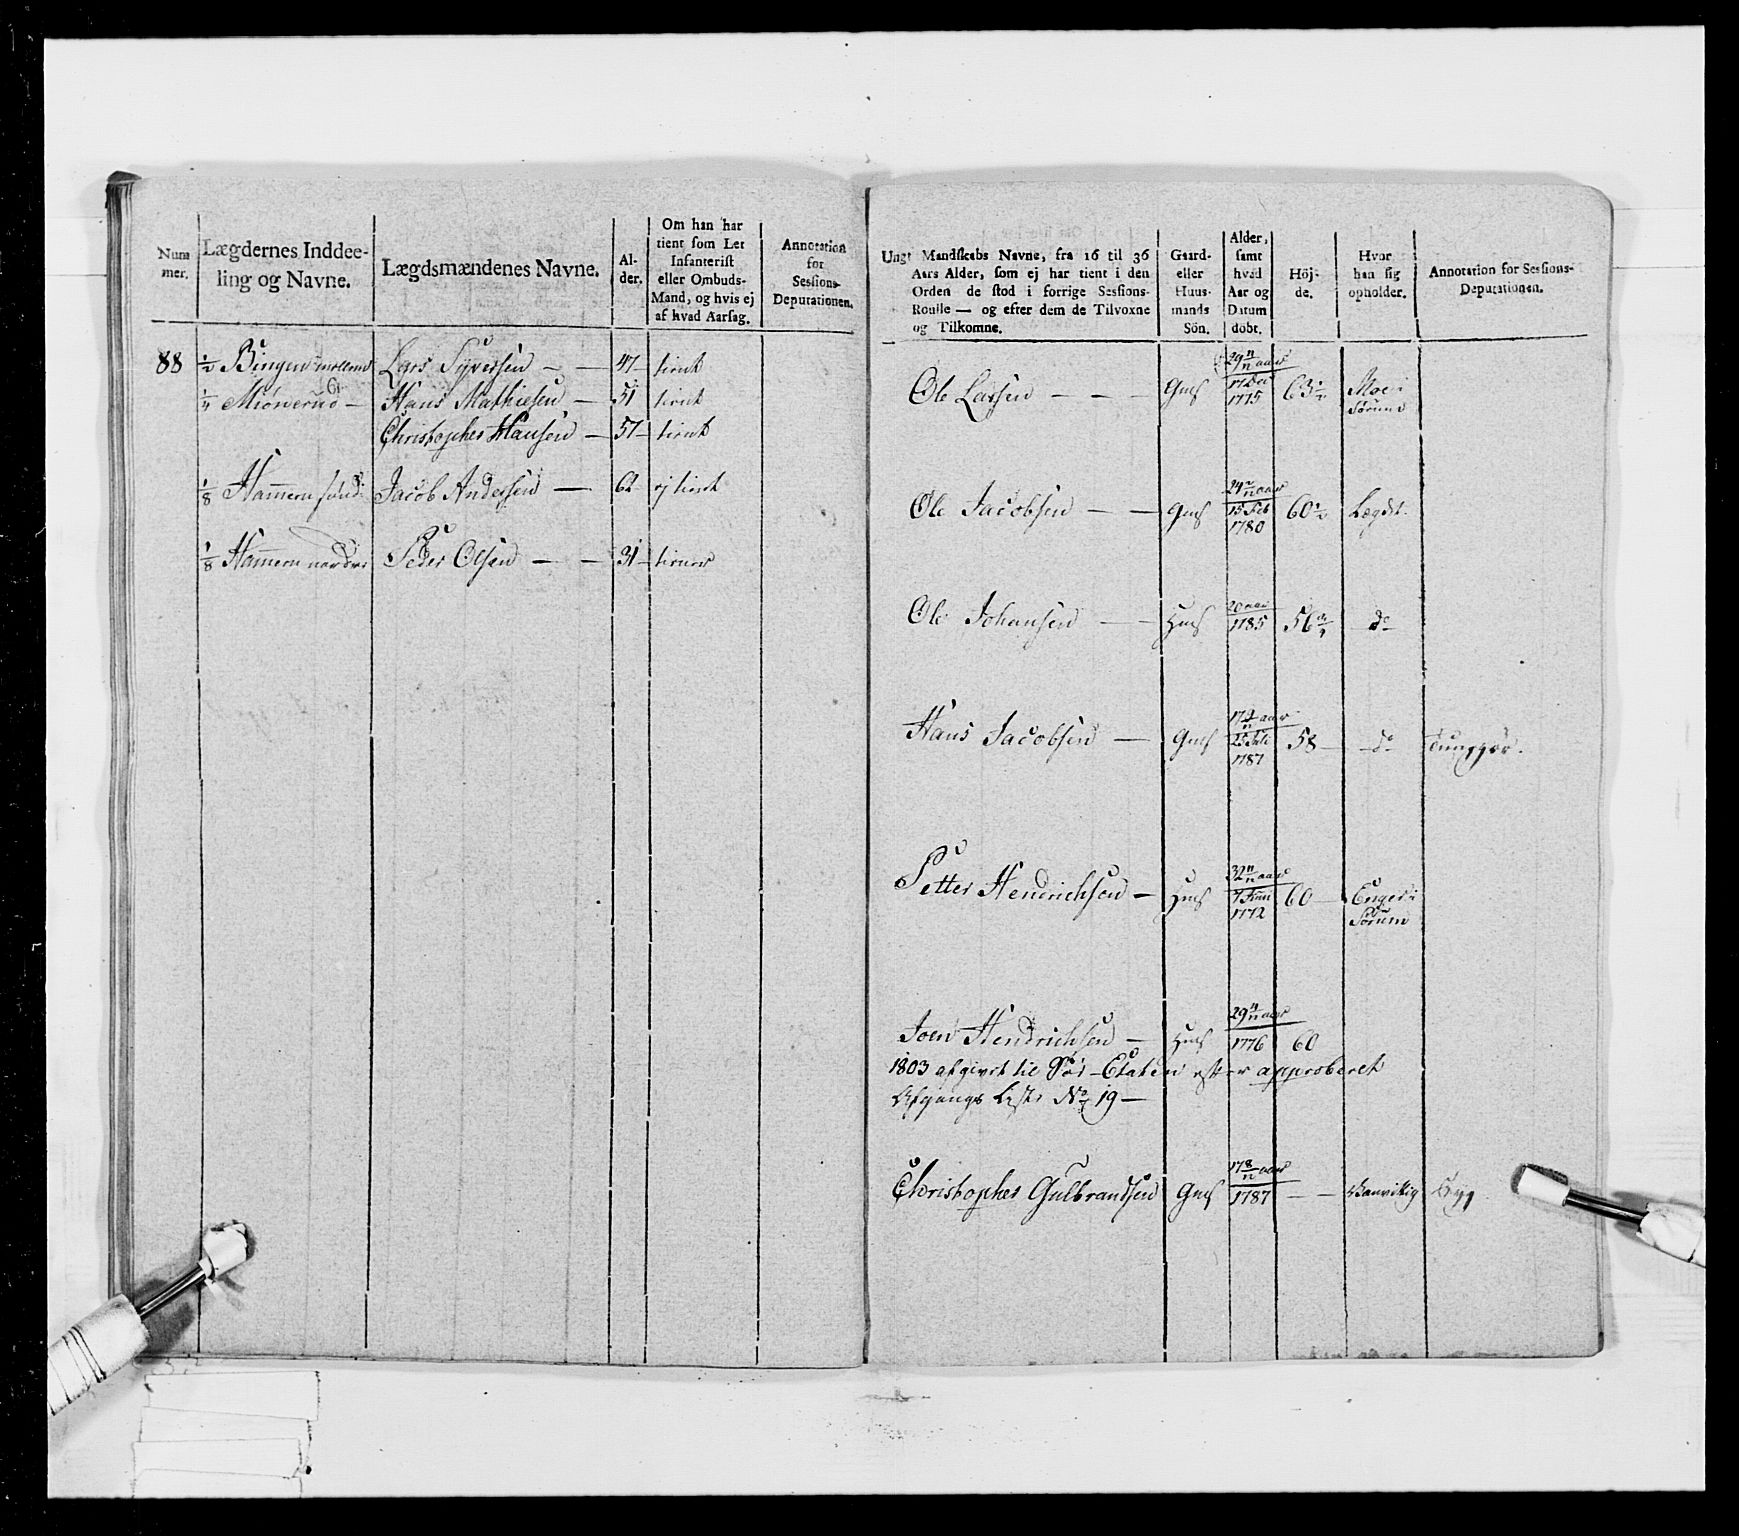 Num mer.
Lægdernes Inddee-
ling og Navne.
Lægdsmændenes Navne.
Al-
der.
Om han har
tient som Let
Infanterist
eller Ombuds-
Mand, og hvis ej
af hvad Aarsag.
Annotation
for
Sessions-
Deputationen.
88 1/2 Bingen mellem Lars Syversen — — 47 — tient
1/4 Miönerud — Hans Mathiesen — 51 tient
Christopher Hansen — 57 — tient
1/8 Hammern sönd: Jacob Andersen — 62 — ej tient
1/8 Hammern nordre Peder Olsen — — 31 — tiener
Ungt Mandskabs Navne, fra 16 til 36
Aars Alder, som ej har tient i den
Orden de stod i forrige Sessions-
Roulle — og efter dem de Tilvoxne
og Tilkomne.
Gaard-
eller
Huus-
mands
Sön.
Alder,
samt
hvad
Aar og
Datum
döbt.
Höj-
de.
Hvor
han sig
opholder.
Annotation for Sessions-
Deputationen.
29 aar
Ole Larsen — — — GmS 1775 63 Moe i
Sörum
24 aar
Ole Jacobsen — — GmS 15 Feb 60 1/2 Lægdet
1780
20 aar
Ole Johansen — — HmS 1785 56 do
17 aar
Hans Jacobsen — GmS 25 58 — do
1787
32 aar
Petter Hendrichsen — HmS 60 — Enger i
1772 Sörum
29 aar
Joen Hendrichsen — HmS 1776 60
1803 afgivet til Söe-Etaten efter approberet
Afgangs Liste No 19 —
17 aar
Christopher Gulbrandsen GmS 1787 — —